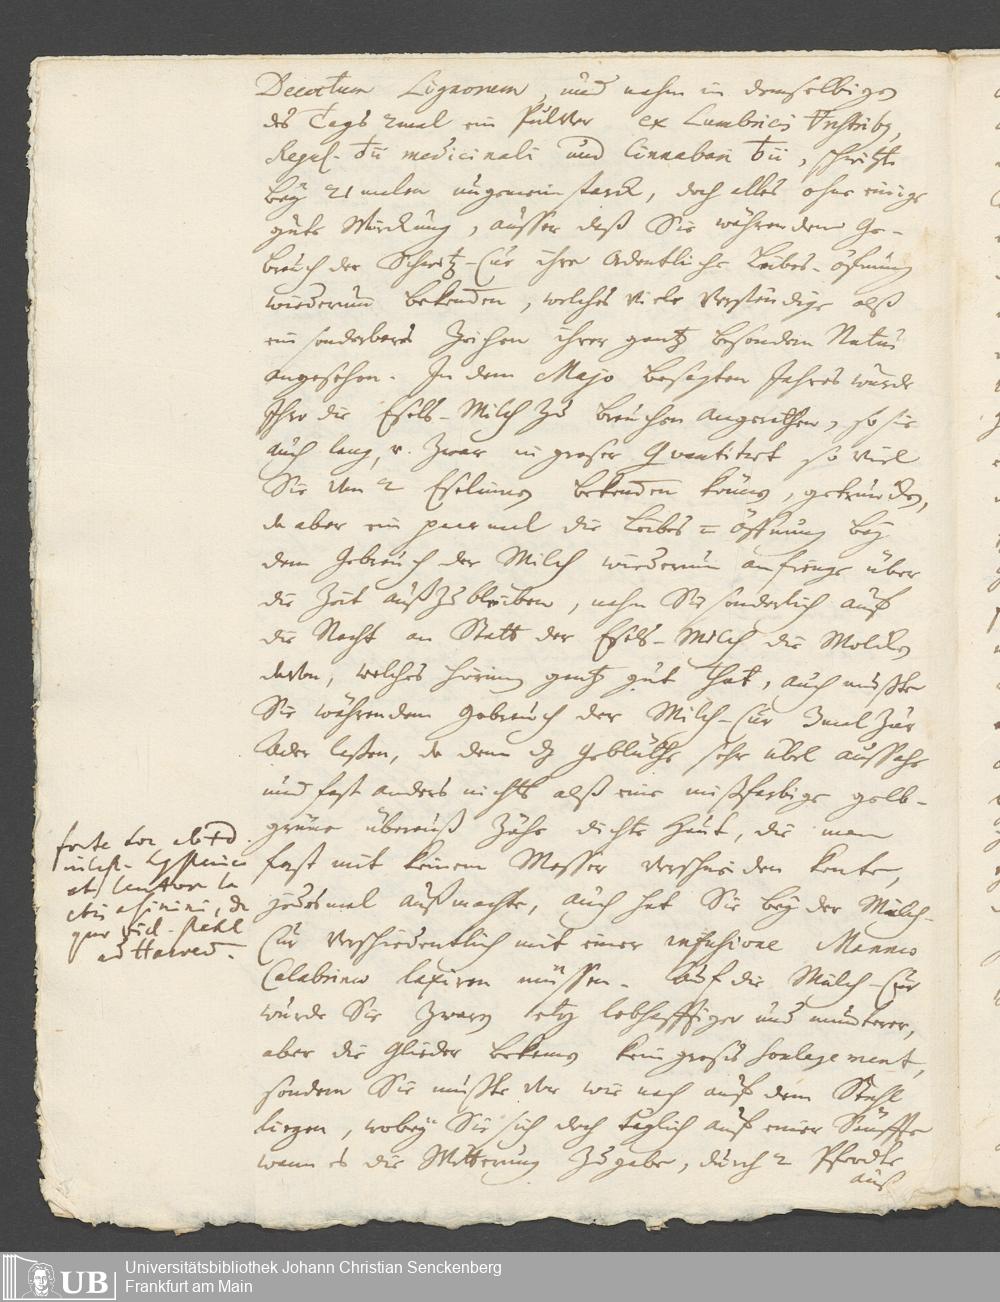 Decoctum Lignorum, und nahm in demselbigen
des Tags 2mal ein Pulver ex Lumbricis
Regul. ♁ii medicinali und Cinnabari ♁ii, schwitzte
bey 21 malen ungemein starck, doch alles ohne einige
gute Würckung, ausser daß Sie währendem Ge-
brauch der Schwitz-Cur ihre ordentliche Leibes-öfnung
wiederum bekommen, welches viele Verständige alß
ein sonderbares Zeichen ihrer gantz besondern Natur
angesehen. In dem Majo besagten Jahres wurde
Ihro die Esels-Milch zu brauchen angerathen, so sie
auch lang, v. zwar in groser Quantitaet so viel
Sie von 2 Eselinnen bekommen können, getruncken,
da aber ein paarmal die Leibes=Öffnung bey
dem Gebrauch der Milch wiederum anfienge über
die Zeit außzubleiben, nahm Sie sonderlich auf
die Nacht an Statt der Esels-Milch die Molcken
davon, welches hierinn gantz gut that, auch muste
Sie währendem Gebrauch der Milch-Cur 3mal zur
Ader lassen, da dann dz Geblüthe sehr übel aussahe
und fast anders nichts alß eine mißfarbige gelb-
grüne überauß zähe dichte Haut, die man
fast mit keinem Messer verschneiden konte,
jedesmal außmachte, auch hat Sie bey der Milch-
Cur verschiedentlich mit einer infusione Mannae
Calabrinae laxiren müssen. Auf die Milch-Cur
wurde Sie zwar etw. lebhafftiger und munterer,
aber die Glieder bekamen kein groses soulagement,
sondern Sie muste vor wie nach auf dem Stuhl
liegen, wobey Sie sich doch täglich auf einer Sänffte
wann es die Witterung zugabe, durch 2 Pferdte
auß
forte
et lentore la
ctis asinini, de
quo vid. Stahl
ad Harved.
Universitätsbibliothek Johann Christian Senckenberg
Frankfurt am Main
UB